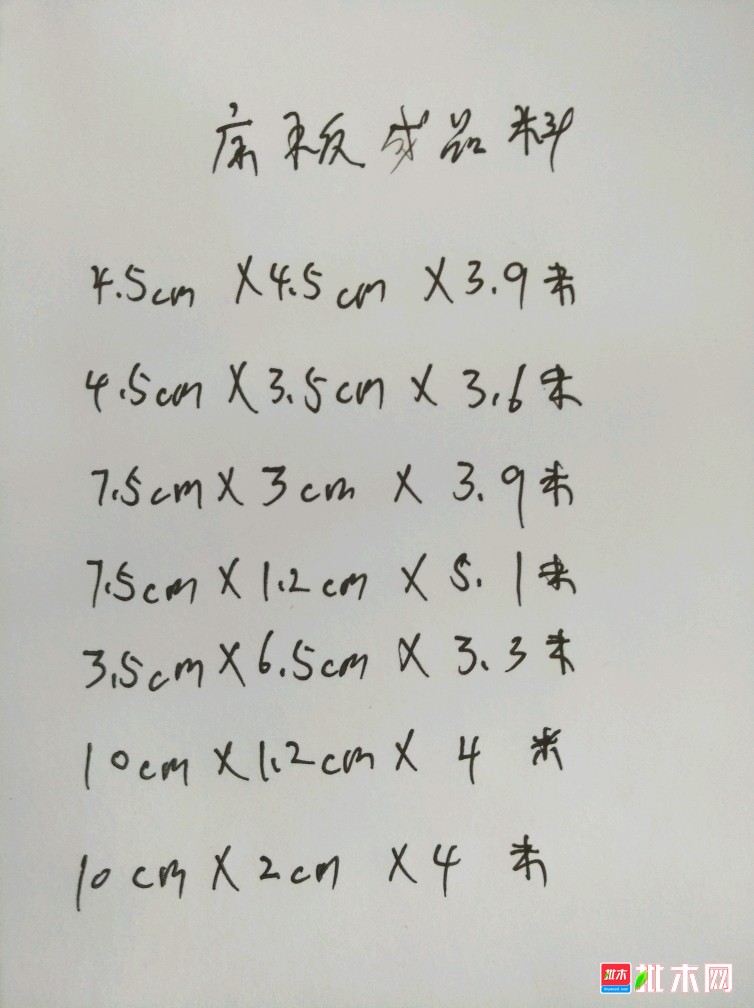 床板成品料
4.5cm X 4.5cm X 3.9米
4.5cm X 3.5cm X 3.6米
7.5cm X 3cm X 3.9米
7.5cm X 1.2cm X 5.1米
3.5cm X 6.5cm X 3.3米
10cm X 1.2cm X 4米
10cm X 2cm X 4米
批木 批木网